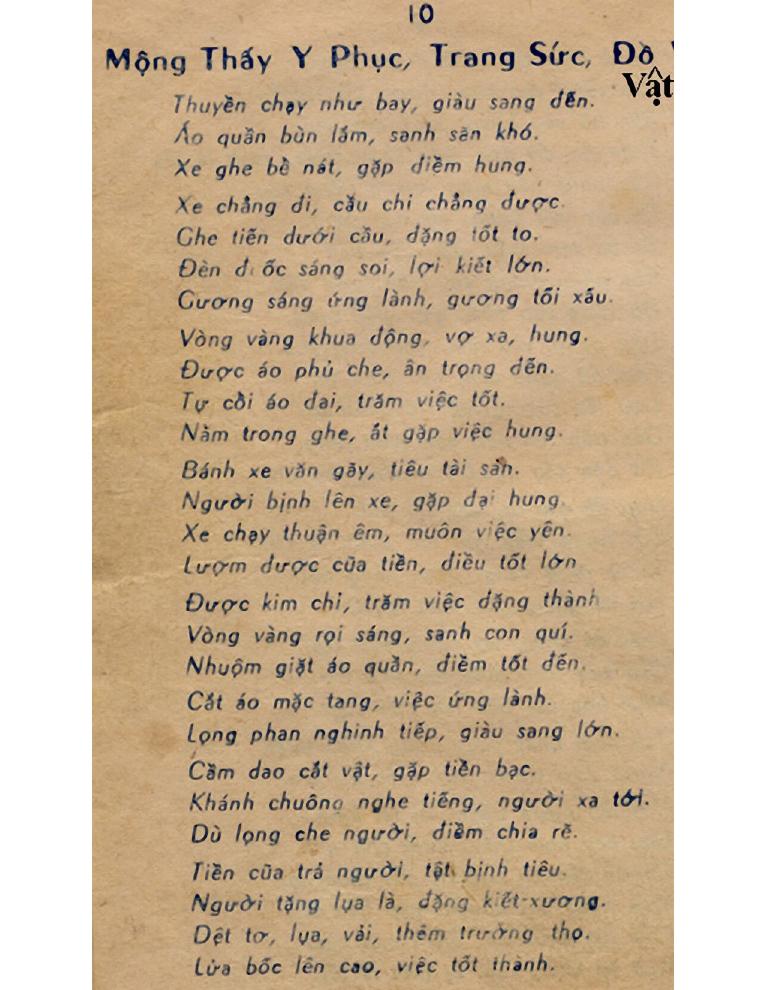 10
Mộng Thấy Y Phục, Trang Sức, Đồ Vật
Thuyền chạy như bay, giàu sang đến.
Áo quần bùn lấm, sanh sãn khó.
Xe ghe bể nát, gặp điềm hung.
Xe chẳng đi, cầu chi chẳng được.
Ghe tiến dưới cầu, đặng tốt to.
Đèn đốc sáng soi, lợi kiết lớn.
Gương sáng ứng lành, gương tối xấu.
Vòng vàng khua động, vợ xa, hung.
Được áo phủ che, ân trọng đến.
Tự cồi áo dai, trăm việc tốt.
Nằm trong ghe, ắt gặp việc hung.
Bánh xe văn gãy, tiêu tài sản.
Người bịnh lên xe, gặp đại hung.
Xe chạy thuận êm, muôn việc yên.
Lượm được cũa tiền, điều tốt lớn
Được kim chỉ, trăm việc đặng thành
Vòng vàng rọi sáng, sanh con quí.
Nhuộm giặt áo quần, điềm tốt đến.
Cắt áo mặc tang, việc ứng lành.
Lọng phan nghinh tiếp, giàu sang lớn.
Cầm dao cắt vật, gặp tiền bạc.
Khánh chuông nghe tiếng, người xa tới.
Dù lọng che người, điềm chia rẽ.
Tiền cũa trả người, tật bịnh tiêu.
Người tặng lụa là, đặng kiết-xương.
Dệt tơ, lụa, vải, thêm trường thọ.
Lửa bốc lên cao, việc tốt thành.